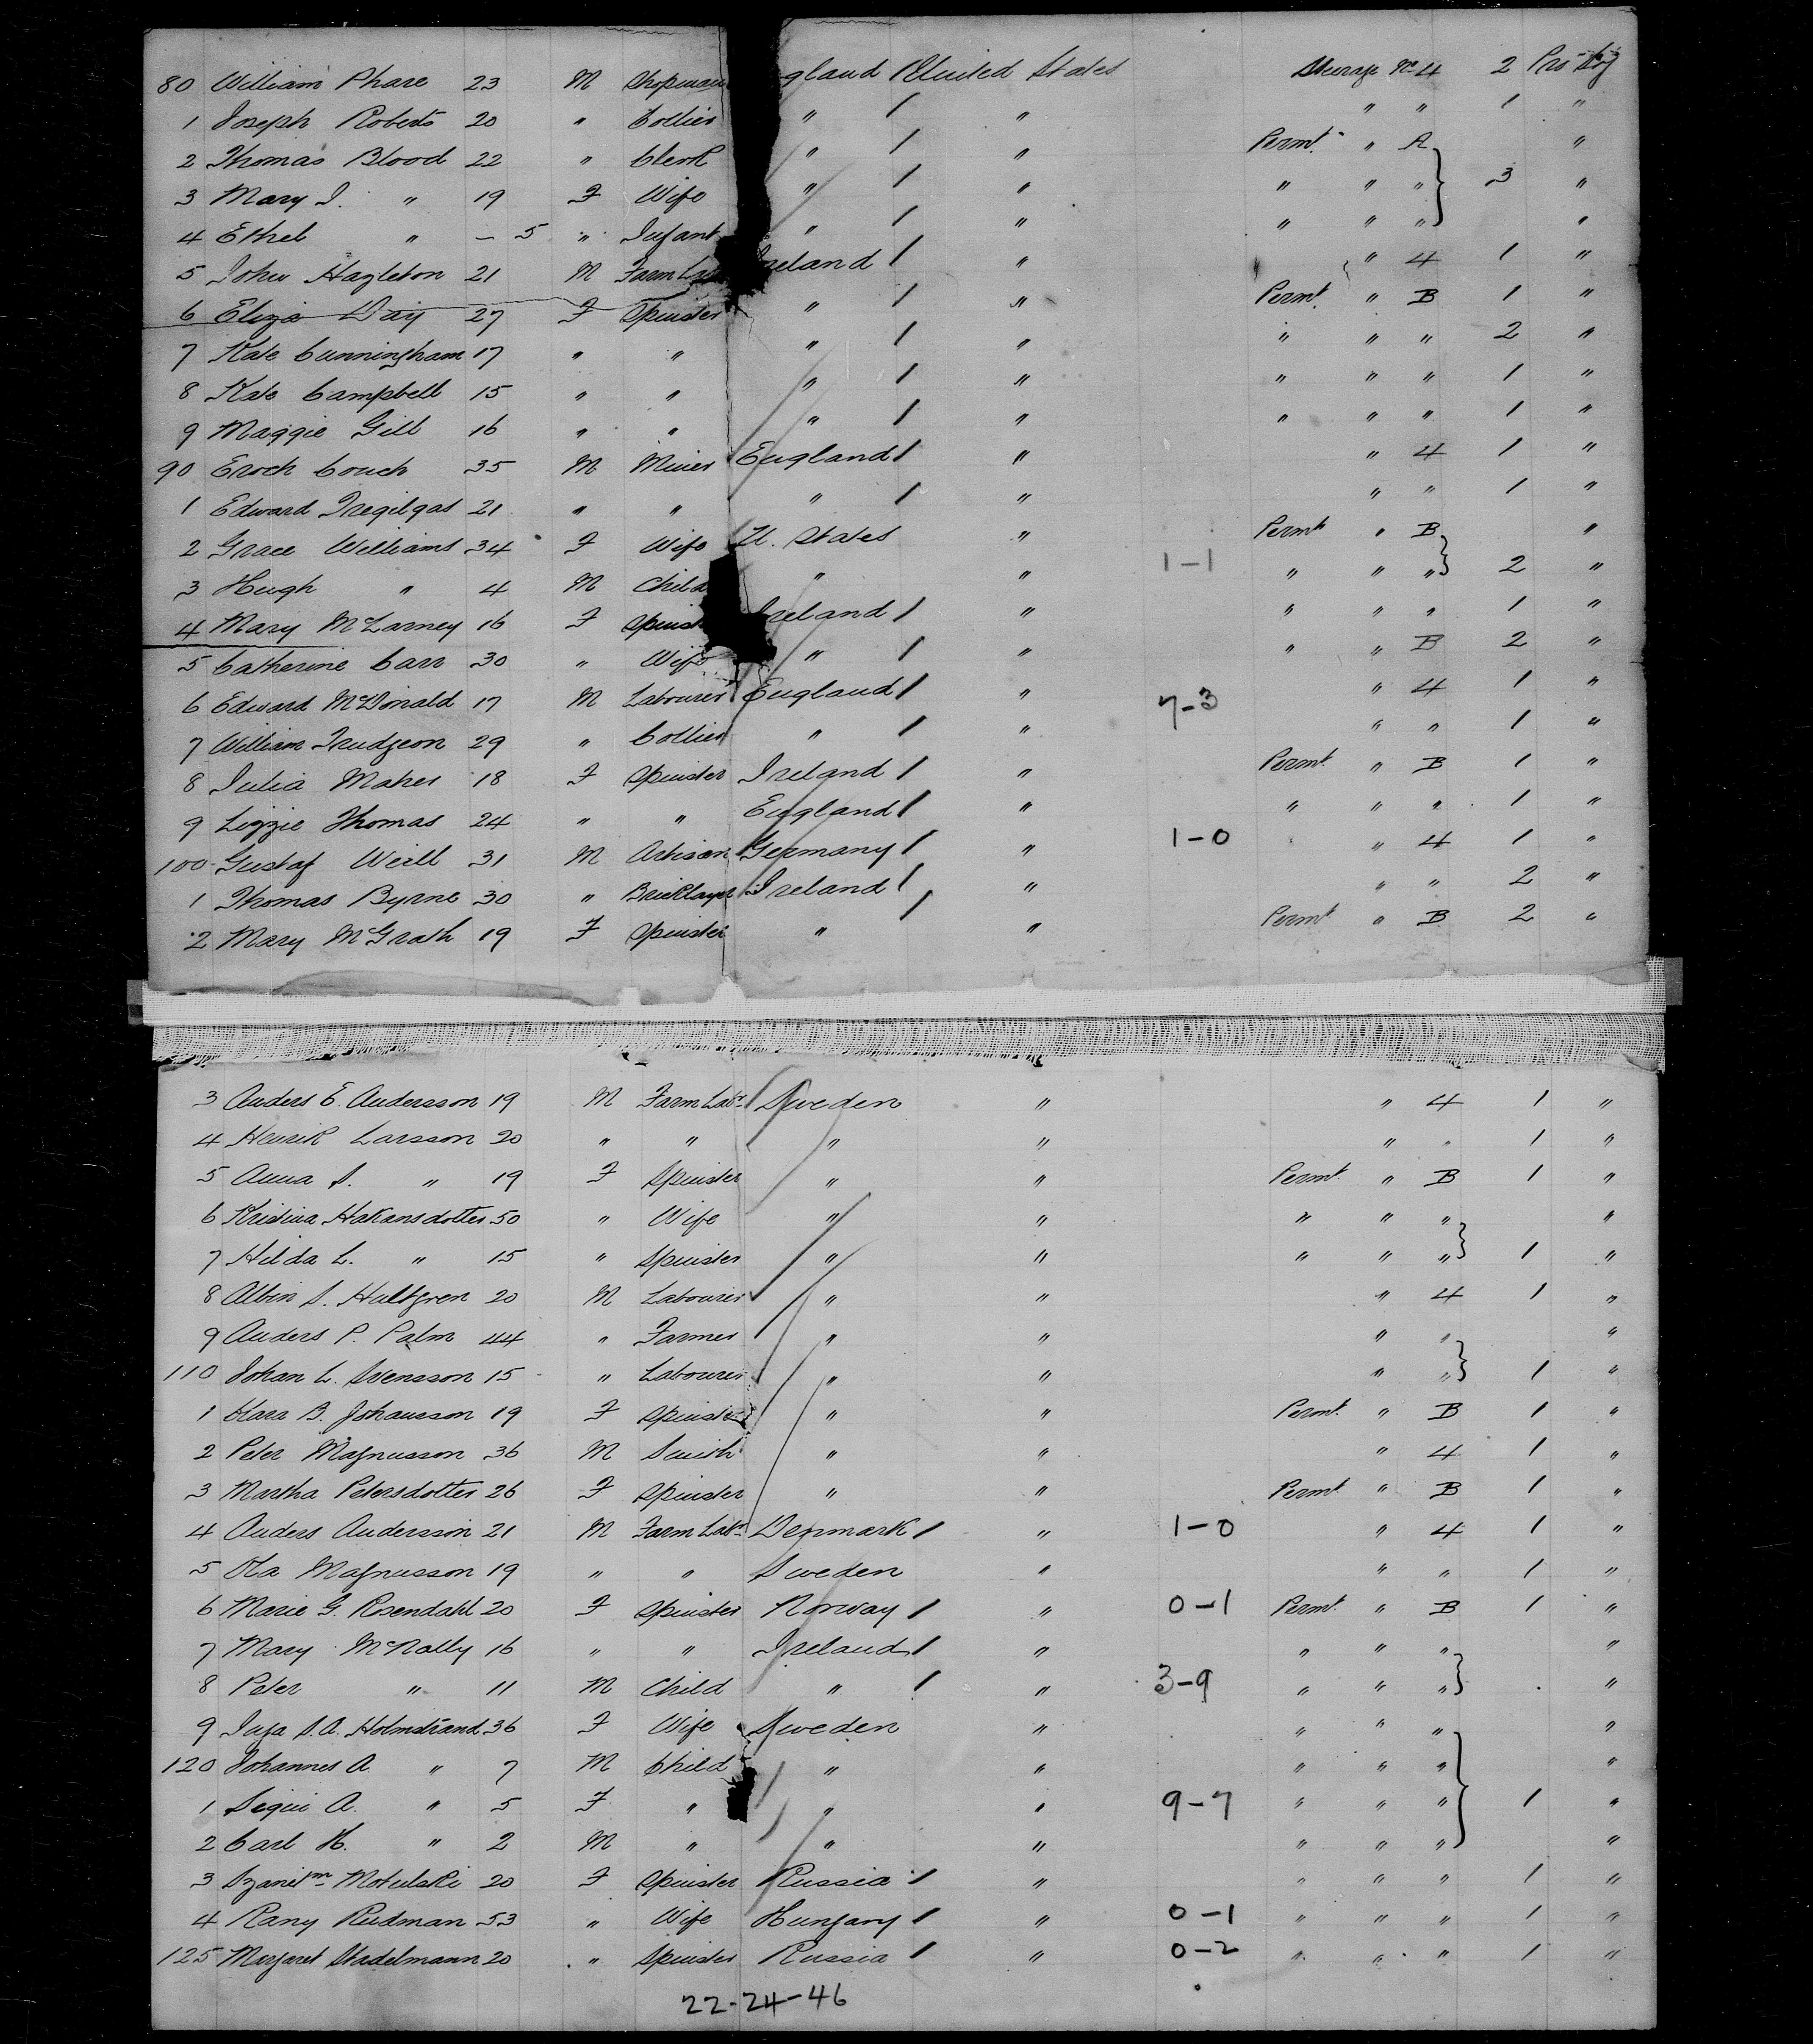 80 William Phare 23 M Shopman gland / United States Steerage No 4 2 Pro Ldg
1 Joseph Roberts 20 " Collier " / " " " 1 "
2 Thomas Blood 22 " Clerk " / " Permt " A "
3 Mary J. " 19 F Wife " / " " " " 3 "
4 Ethel " – 5 " Infant " / " " " " "
5 John Hazleton 21 M Farm Lab reland / " " 4 1 "
6 Eliza Day 27 F Spinster " / " Permt " B 1 "
7 Kate Cunningham 17 " " " / " " " " 2 "
8 Kate Campbell 15 " " " / " " " " 1 "
9 Maggie Gill 16 " " " / " " " " 1 "
90 Enoch Couch 35 M Miner England / " " 4 1 "
1 Edward Tregilgas 21 " " " / " " " 1 "
2 Grace Williams 34 F Wife U. States " Permt " B "
3 Hugh " 4 M Child " " 1-1 " " " 2 "
4 Mary McLarney 16 F Spinst Ireland / " " " " 1 "
5 Catherine Carr 30 " Wife " / " " " B 2 "
6 Edward McDonald 17 M Labourer England / " 7-3 " 4 1 "
7 William Trudgeon 29 " Collier " / " " " 1 "
8 Julia Maher 18 F Spinster Ireland / " Permt " B 1 "
9 Lizzie Thomas 24 " " England / " " " " 1 "
100 Gustaf Weill 31 M Artisan Germany / " 1-0 " 4 1 "
1 Thomas Byrne 30 " Bricklayer Ireland / " " " 2 "
2 Mary McGrath 19 F Spinster " / " Permt " B 2 "
3 Anders E. Andersson 19 M Farm Labr Sweden " " 4 1 "
4 Henrik Larsson 20 " " " " " " 1 "
5 Anna S. " 19 F Spinster " " Permt " B 1 "
6 Kristina Hakansdotter 50 " Wife " " " " " "
7 Hilda L. " 15 " Spinster " " " " " 1 "
8 Albin S. Hultgren 20 M Labourer " " " 4 1 "
9 Anders P. Palm 44 " Farmer " " " " "
110 Johan L. Svensson 15 " Labourer " " " " 1 "
1 Klara B. Johansson 19 F Spinster " " Permt " B 1 "
2 Peter Magnusson 36 M Smith " " " 4 1 "
3 Martha Petersdotter 26 F Spinster " " Permt " B 1 "
4 Anders Andersson 21 M Farm Labr Denmark / " 1-0 " 4 1 "
5 Ola Magnusson 19 " " Sweden " " " 1 "
6 Marie G. Rosendahl 20 F Spinster Norway / " 0-1 Permt " B 1 "
7 Mary McNally 16 " " Ireland / " " " " "
8 Peter " 11 M Child " / " 3-9 " " " "
9 Inga S.A. Holmstrand 36 F Wife Sweden " " " " "
120 Johannes A. " 7 M Child " " " " " "
1 Signi A. " 5 F " " " 9-7 " " " 1 "
2 Carl H. " 2 M " " " " " " "
3 Motulski 20 F Spinster Russia / " " " " 1 "
4 Rany Rudman 53 " Wife Hungary / " 0-1 " " " 1 "
125 Margaret Stadelmann 20 " Spinster Russia / " 0-2 " " " 1 "
22-24-46